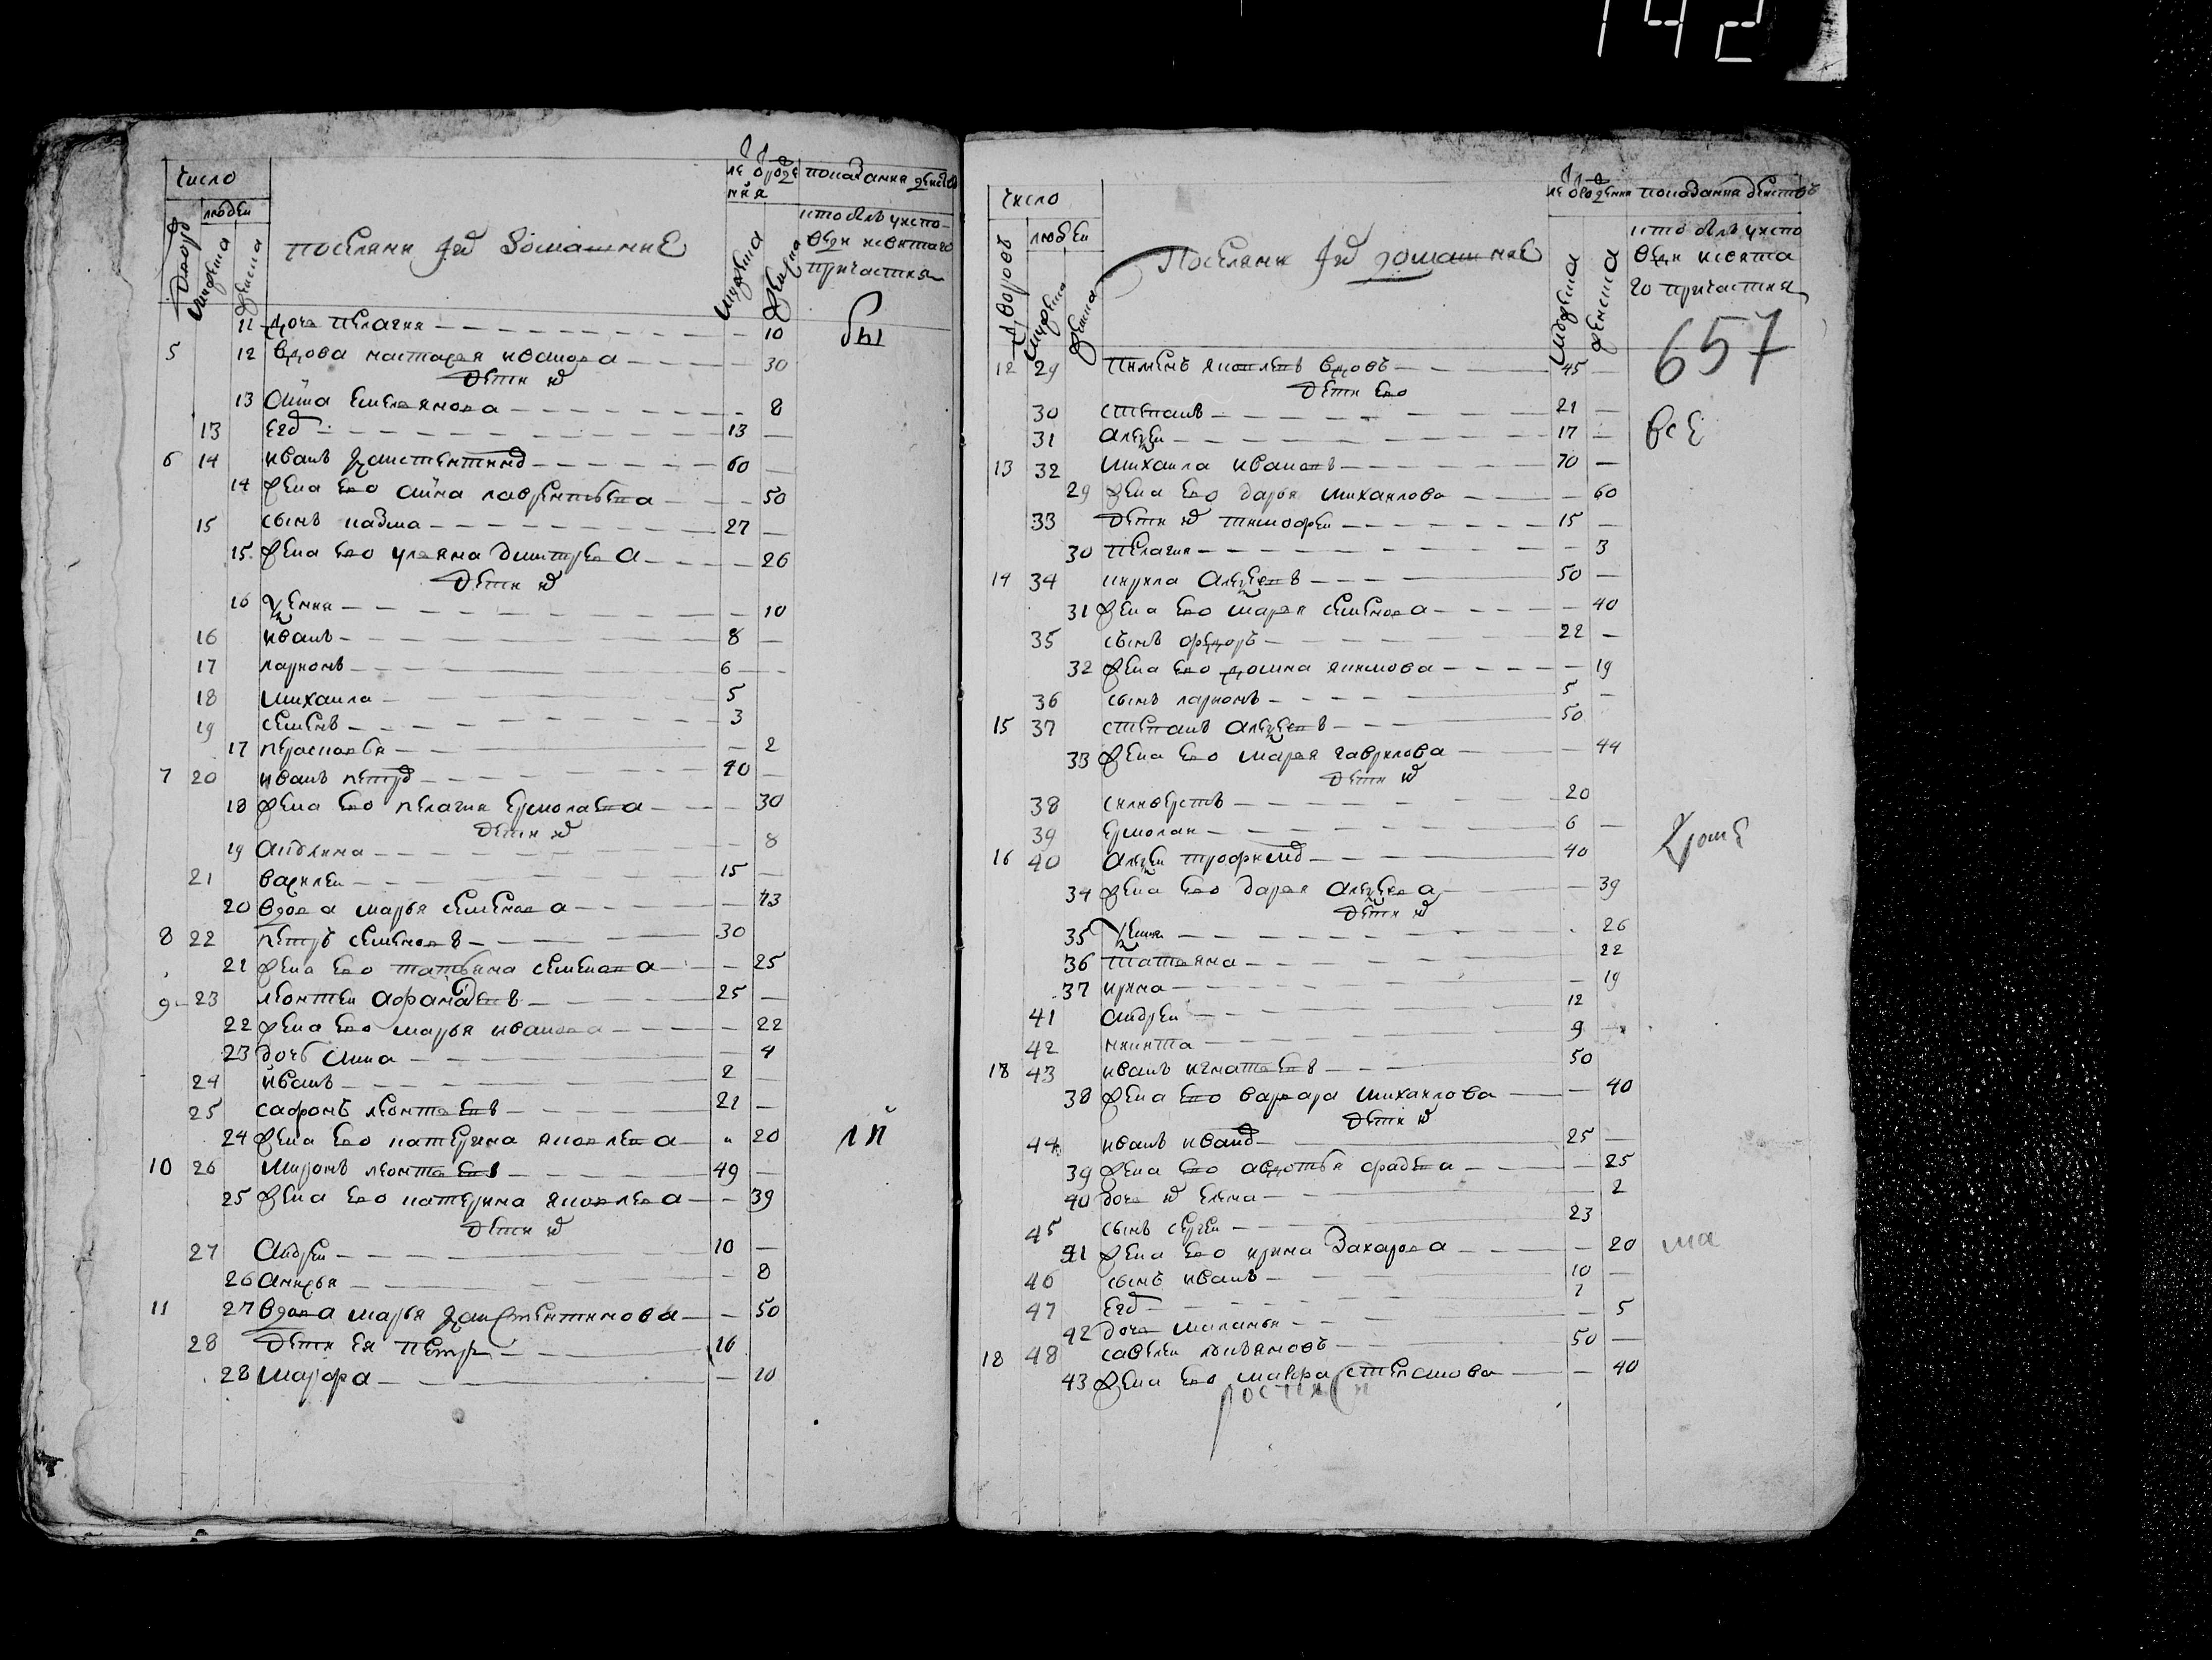 142
число
людеи
поселяня их домашние
лет от рождения
показания деиств
кто был у испо-
веди и светаго
причастия
11 дочь пелагия 10 бы
5 12 вдова настасея иванова 30
дети их
13 анна емельянова 8
13 егор 13
6 14 иван констентинов 60
14 жена ево анна лаврентьева 50
15 сынъ казма 27
15 жена ево ульяна дмитрева 26
дети их
16 ксения 10
16 иванъ 8
17 ларионъ 6
18 михаила 5
19 семенъ 3
17 прасковья 2
7 20 иванъ петров 40
18 жена ево пелагия ермолаева 30
дети их
19 акулина 8
21 василеи 15
20 вдова марья семенова 43
8 22 петръ семеновъ 30
21 жена ево татьяна семенова 25
9 23 леонтеи афанасевъ 25
22 жена ево марья иванова 22
23 дочь анна 4
24 иванъ 2
25 сафонъ леонтьевъ 21
24 жена ево катерина яковлева 20 ли
10 26 миронъ леонтьевъ 49
25 жена ево катерина яковлева 39
дети их
27 андреи 10
26 анисья 8
11 27 вдова марья констентинова 50
28 дети ея петр 16
28 марфа 10
число
дворовъ
людеи
мужеска
женска
Поселяня их домашние
лет от рождения
показания деистъ
мужеска
женска
кто былъ у испо
веди и свята
го причастия
657
12 29 пименъ яковлевъ вдовъ 45
дети ево
30 степанъ 21 все
31 алексеи 17
13 32 михаила ивановъ 70
29 жена ево дарья михаилова 60
33 дети их тимофеи 15
30 пелагия 3
14 34 кирила алексеевъ 50
31 жена ево марья семенова 40
35 сынъ федоръ 22
32 жена ево домна якимова 19
36 сынъ ларионъ 5
15 37 степанъ алексеевъ 50
33 жена ево марья гаврилова 44
дети их
38 силиверстъ 20
39 ермолаи 6
16 40 алексеи трофимов 40
34 жена ево дарья алексеева 39
дети их
35 ксения 26
36 татьяна 22
37 ирина 19
41 андреи 12
42 никита 9
18 43 иванъ игнатьевъ 50
38 жена ево варвара михаилова 40
дети их
44 иванъ иванов 25
39 жена ево авдотья фадеева 25
40 дочь их елена 2
45 сынъ сергеи 23
41 жена ево ирина захарова 20 ма
46 сынъ иванъ 10
47 егор 7
42 дочь маланья 5
18 48 савелеи 50
43 жена ево мавра степанова 40
росписи